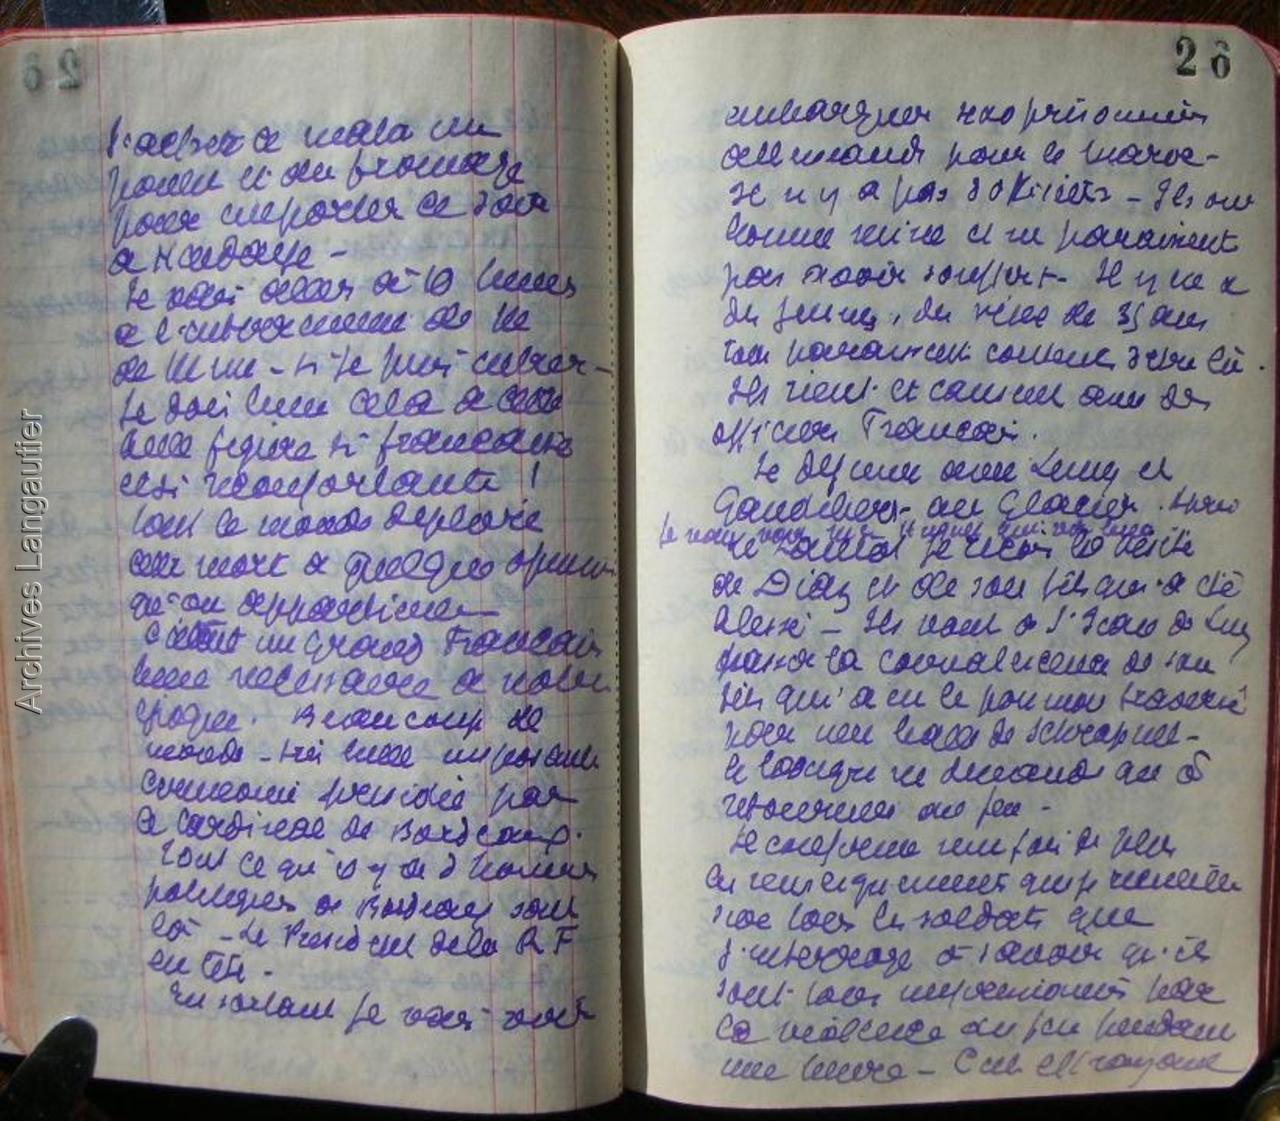 J'achète à maba un
poulet et du fromage
pour emporter ce soir
à Hendaye -
Je vais aller à 10 heures
à l'enterrement de Mr
de Mun - si je puis entrer -
Je dois bien cela à cette
belle figure si française
et si réconfortante !
Tout le monde déplore
cette mort à quelque opinion
qu'on appartienne
C'était un grand Français
bien nécessaire à notre
époque. Beaucoup de
monde - très belle imposante
cérémonie présidée par
le Cardinal de Bordeaux.
Tout ce qu'il y a d'hommes
politiques à Bordeaux sont
là - Le Président de la R F
en tête.
En sortant je vais voir
26
embarquer 200 prisonniers
allemands pour le Maroc -
Il n'y a pas d'officiers - Ils ont
bonne mine et ne paraissent
pas avoir souffert - Il y en a
des jeunes, des vieux de 35 ans
tous paraissent contents d'être là.
Ils rient et causent avec des
officiers Français.
Je déjeune avec Lung et
Gaudibert au Glacier.
je reçois la visite
de Diaz et de son fils qui a été
blessé - Ils vont à
passer la convalescence de son
fils qui a eu le poumon traversé
par une balle de schrapnel -
le longeur ne demande qu'à
retourner au feu -
Je confirme une fois de plus
les renseignements que je recueille
par tous les soldats que
j'interroge à savoir qu'ils
sont tous impressionnés par
la violence du feu pendant
une heure - C'est effrayant
Archives Langautier